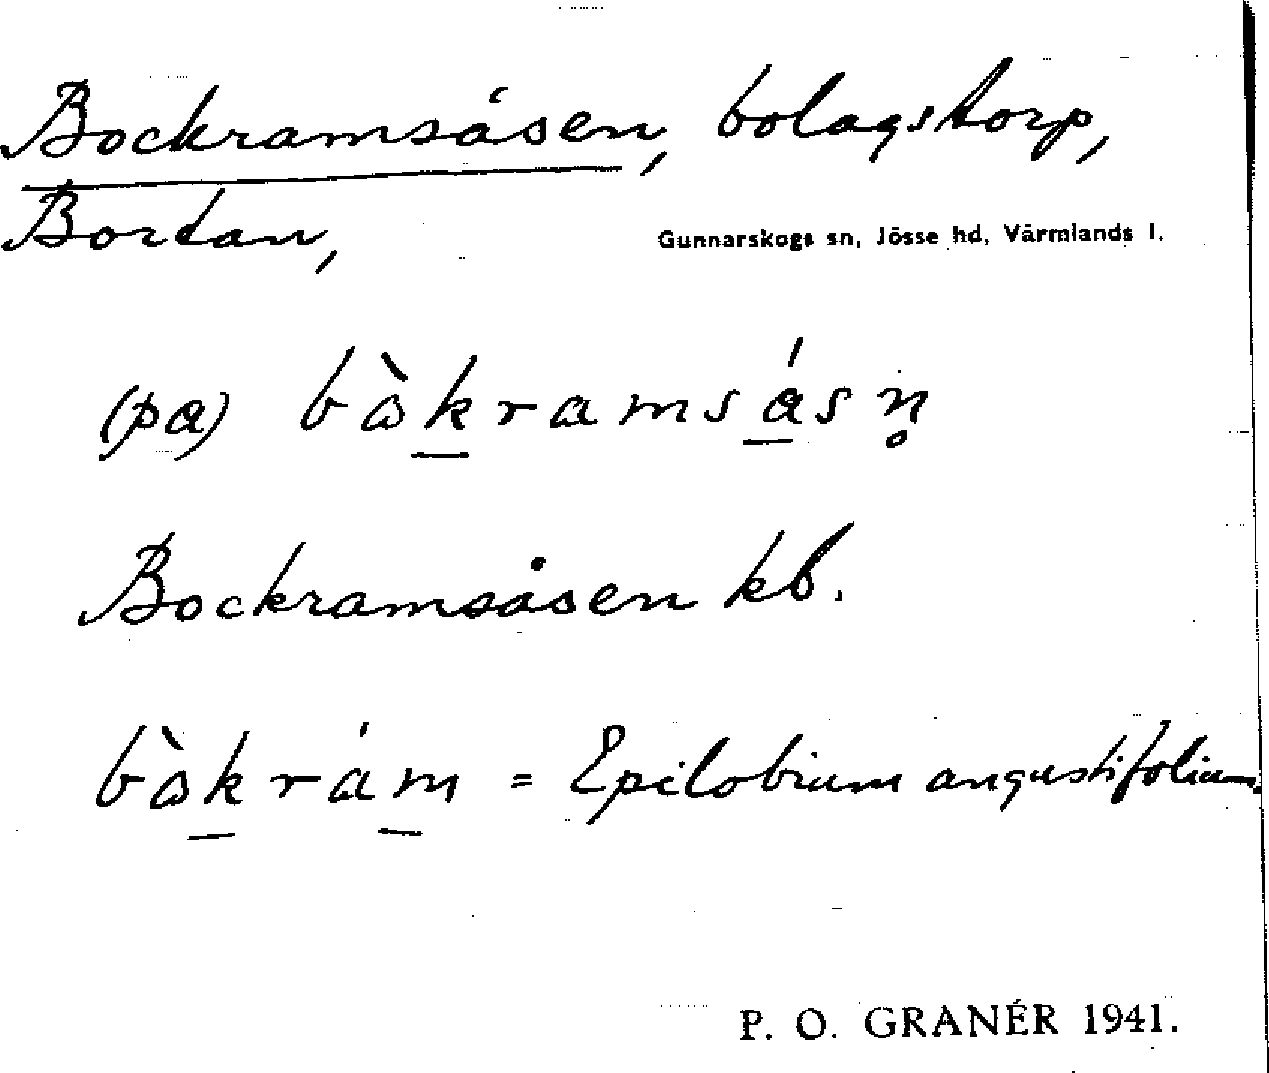 Bockramsåsen, bolagstorp,
Bortan,
Gunnarskogs sn, Jösse hd, Värmlands l.
(pa) bòkramsásn̥
Bockramsåsen kb.
bòkrám = Epilobium angustifolium.
P. O. GRANÉR 1941.